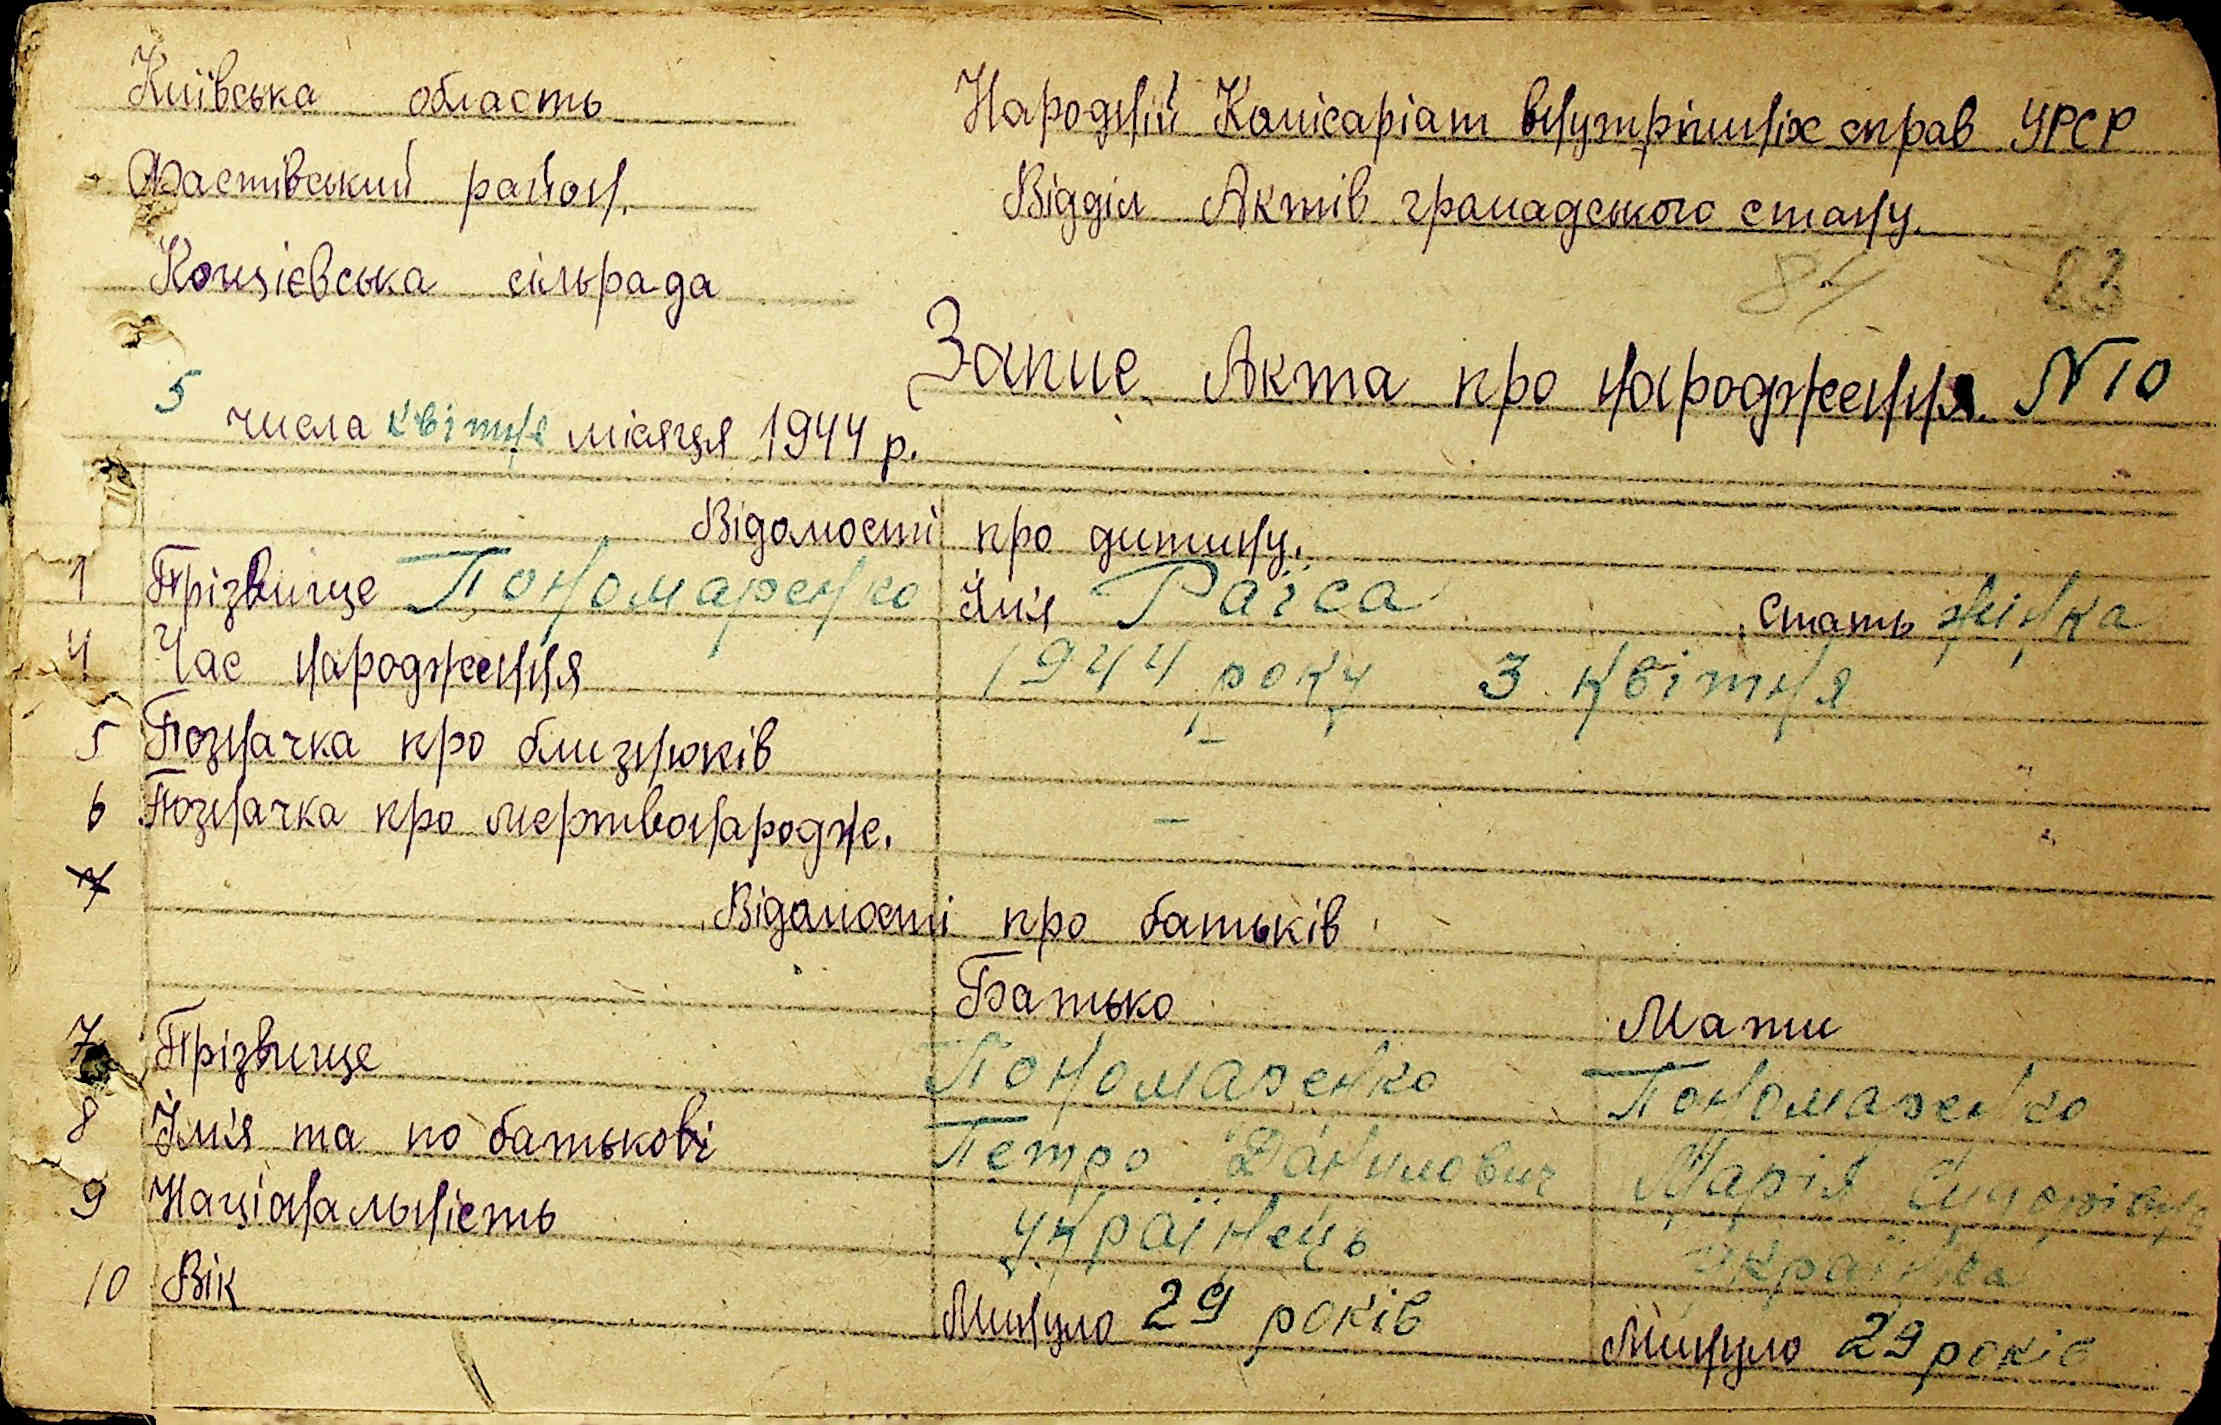 Київська область
Народній Комісаріат внутрішніх справ УРСР
Фастівський район.
Відділ Актів громадського стану.
Кощієвська сільрада
84 83
Запис Акта про народження N 10
5 числа квітня місяця 1944 р.
Відомості про дитину.
1 Прізвище Пономаренко Їм'я Раїса Стать жінка
4 Час народження 1944 року 3 квітня
5 Позначка про близнюків -
6 Позначка про мертвонародже. -
Відомості про батьків
Батько Мати
7 Прізвище Пономаренко Пономаренко
8 Їм'я та по батькові Петро Данилович Марія
9 Національність українець українка
10 Вік Минуло 29 років Минуло 29 років